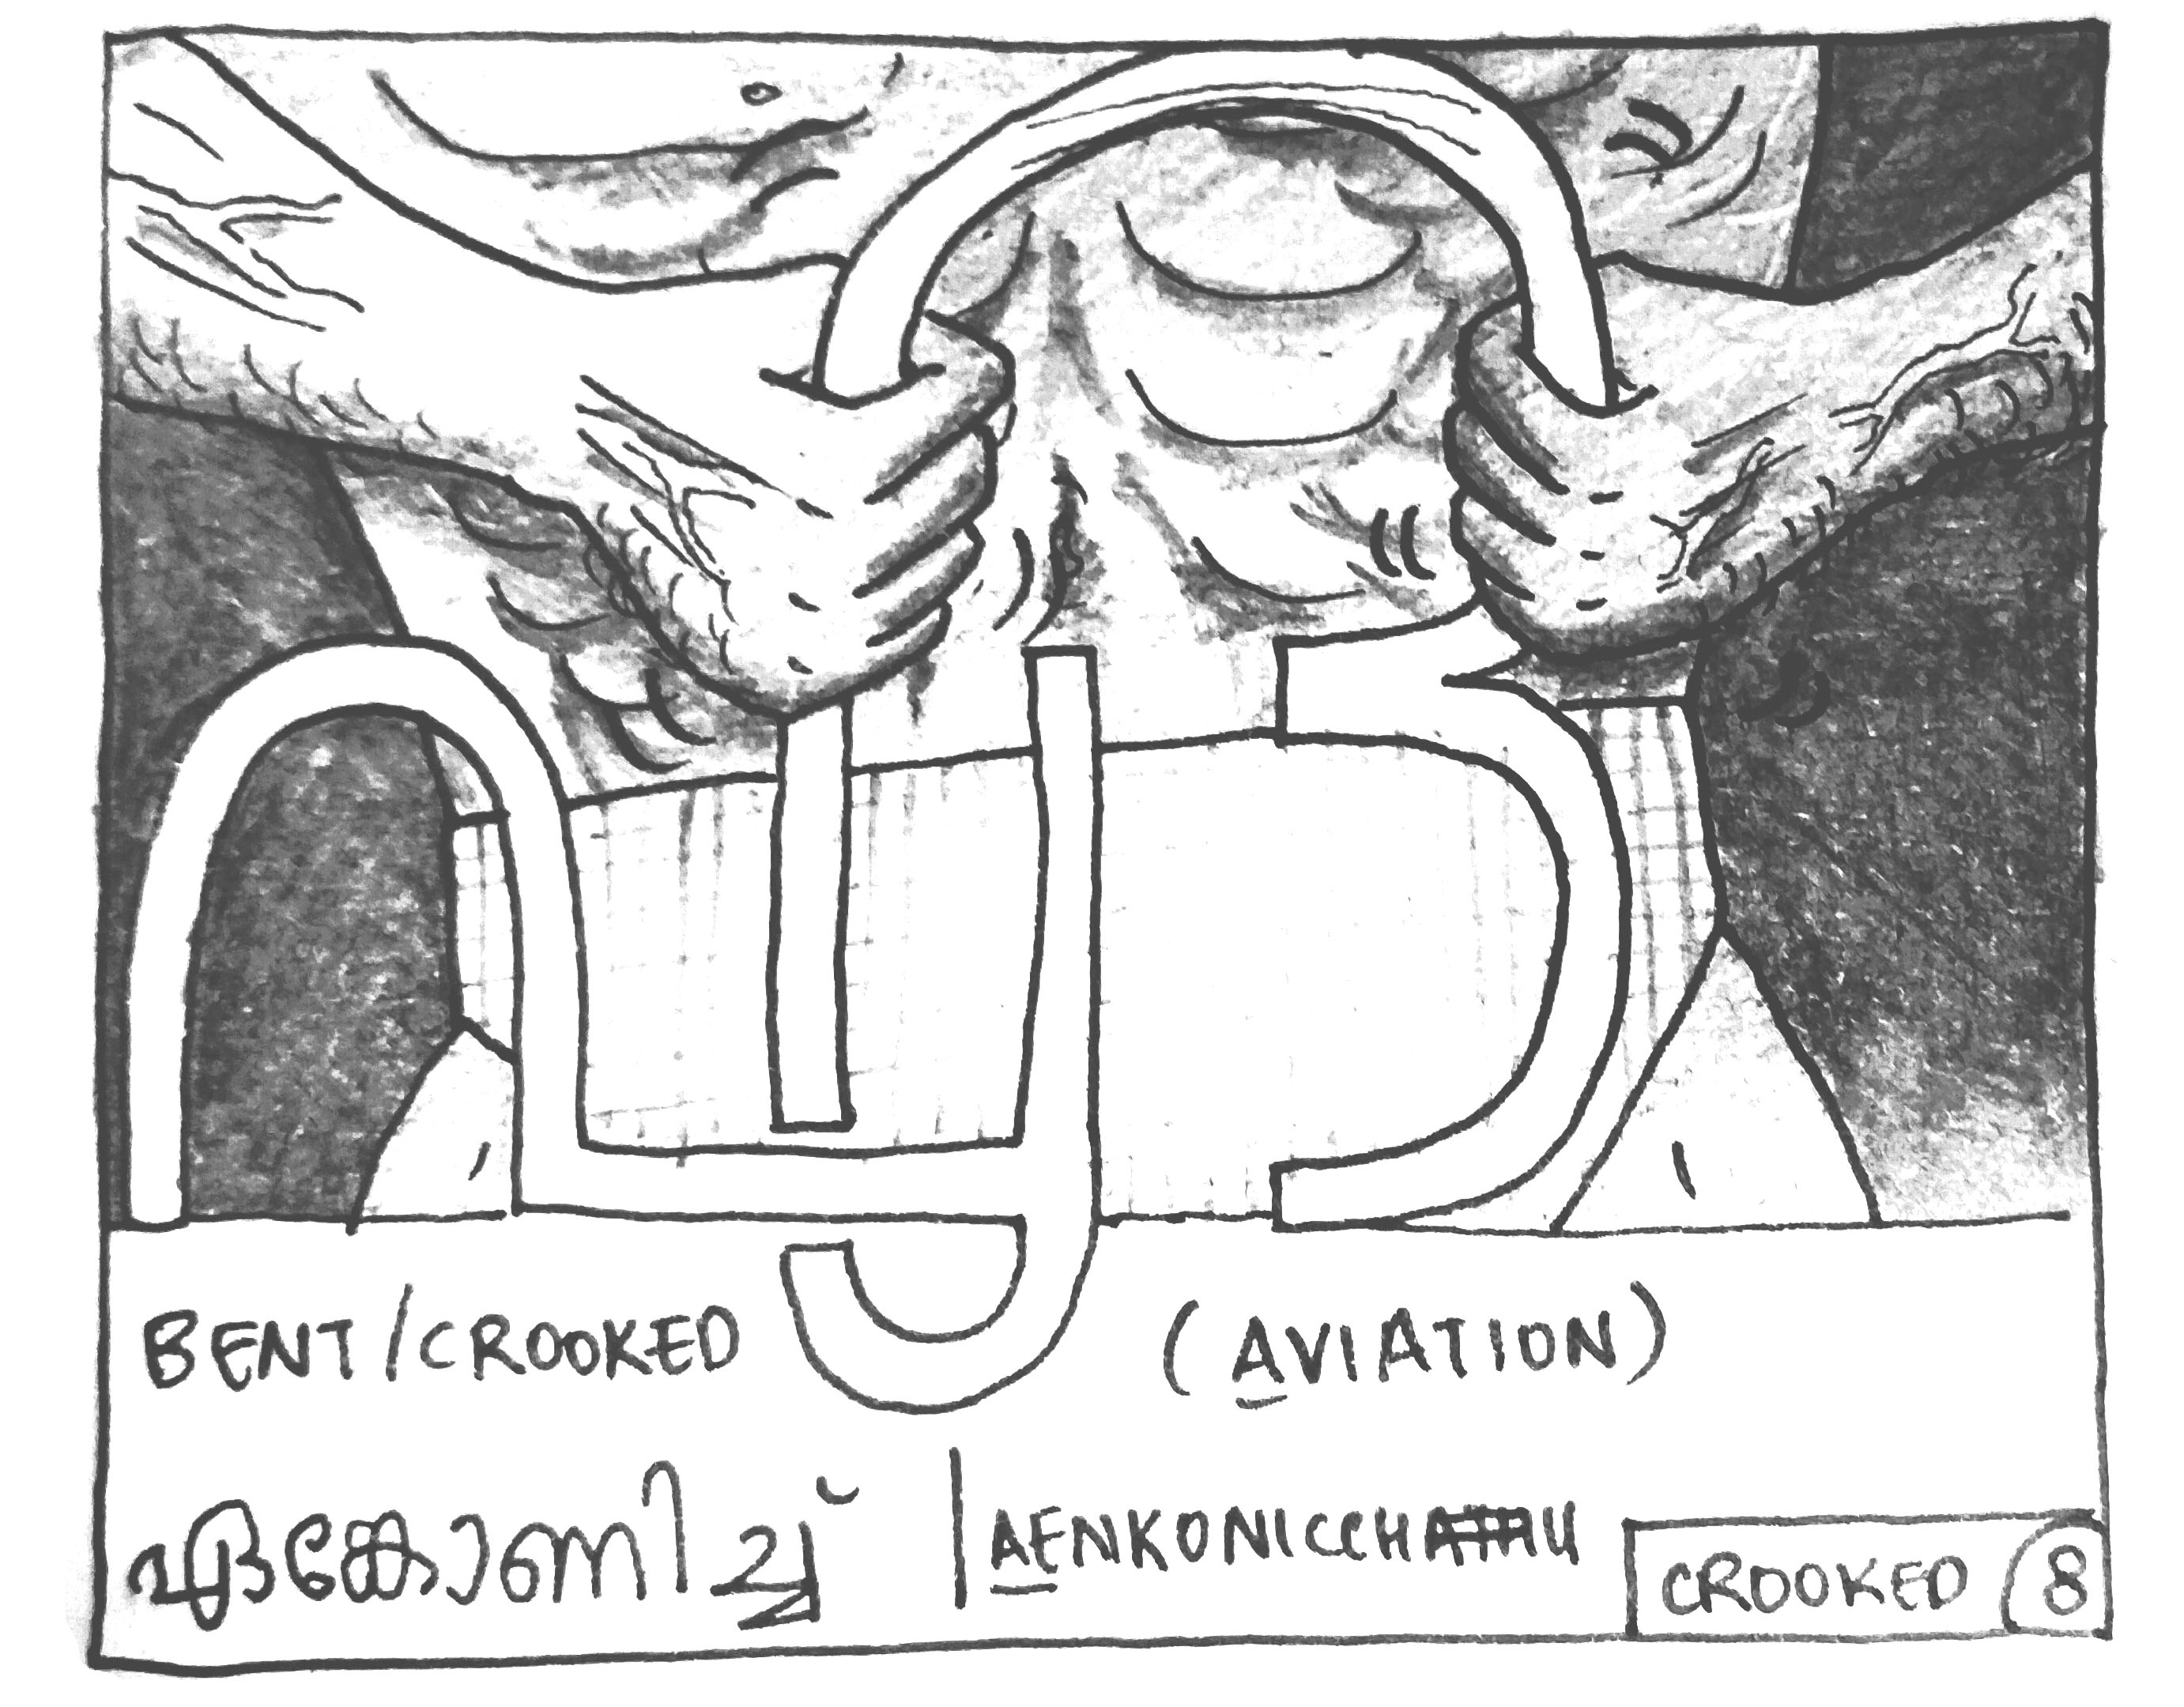 ഏ
BENT/CROOKED (AVIATION)
ഏങ്കോണിച്ച് | AENKONICCHU
CROOKED 8